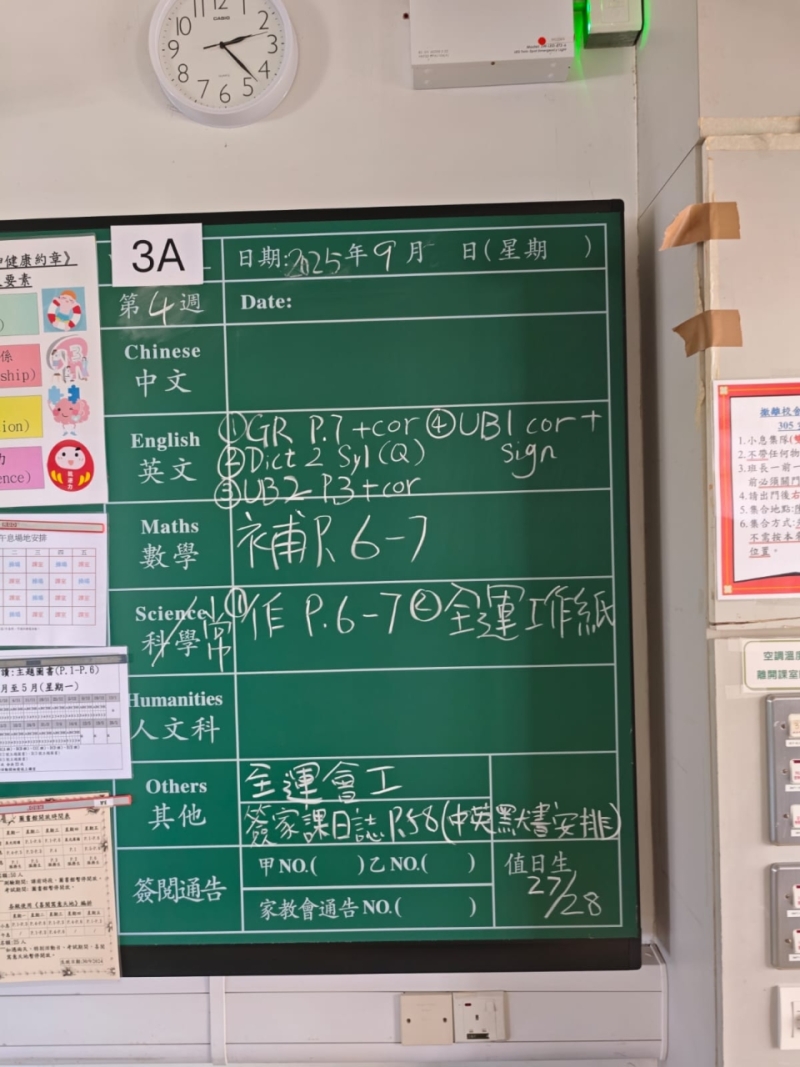 CASIO
3A
日期:2025年9月 日(星期 )
第4週
Date:
Chinese
中文
English
英文
①GR P.7+cor ④UB1 cor+
sign
②Dict 2 Syl(Q)
③UB2 P3+cor
Maths
數學
補P.6-7
Science/常
科學
①作 P.6-7 ②全運工作紙
Humanities
人文科
Others
其他
全運會工
簽家課日誌P.58(中英默書安排)
簽閱通告
甲NO.( )乙NO.( )
家教會通告NO.( )
值日生
27/28
健康約章》
要素
係
ship)
ion)
力
ence)
午息場地安排
讀:主題圖書(P.1-P.6)
月至5月(星期一)
圖書館開放時間表
305
1.小息集隊
2.不帶任何物
3.班長一前一
前必須關門
4.請出門後右
5.集合地點:
6.集合方式:
不需按本
位置。
空調溫度
離開課室